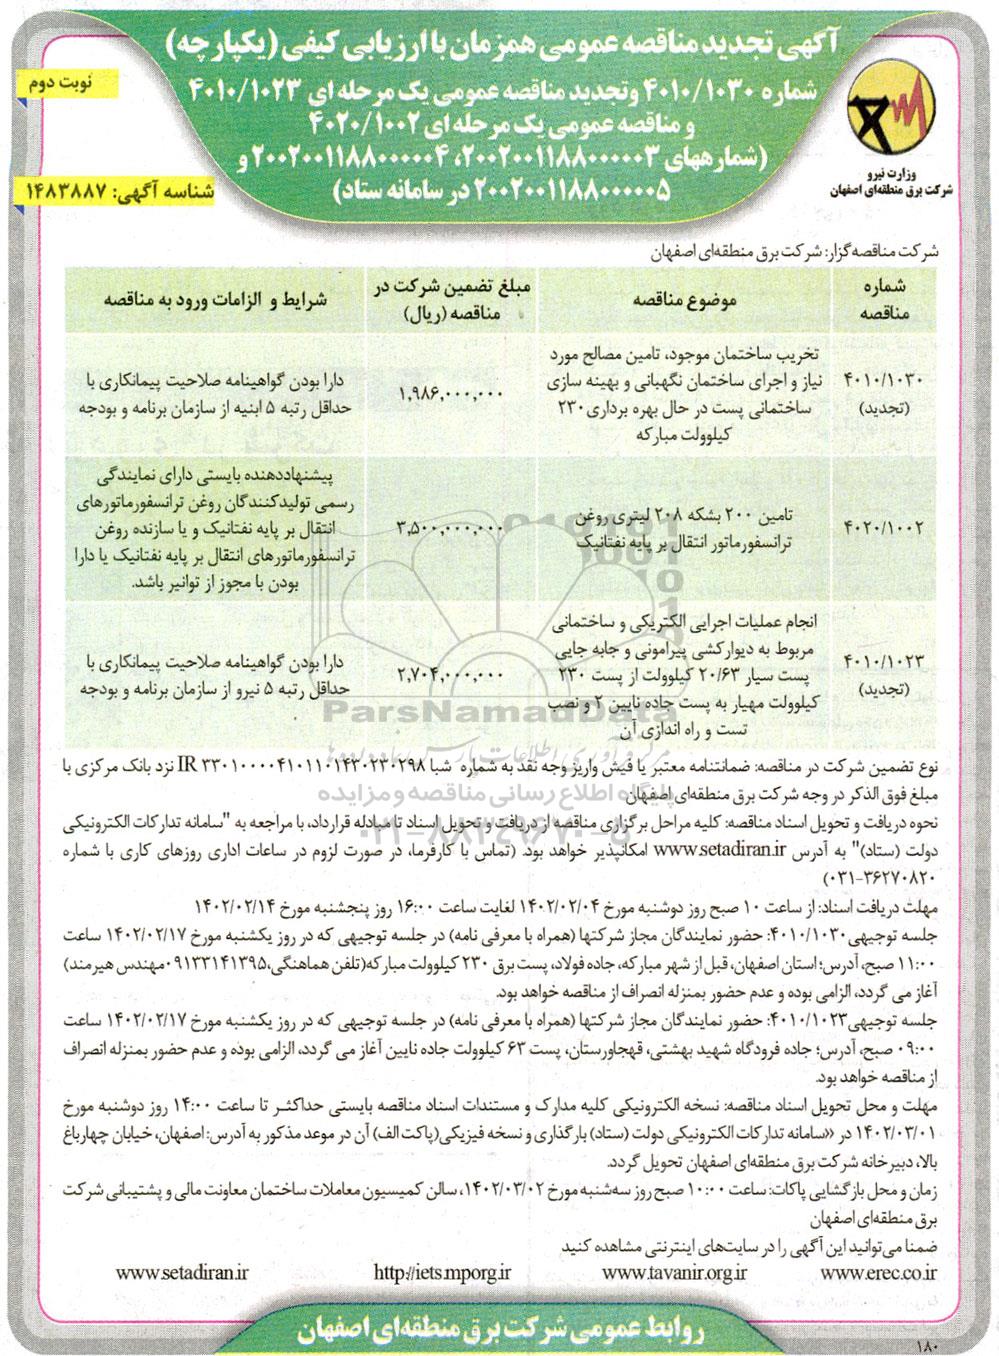 آگهی تجدید مناقصه عمومی همزمان با ارزیابی کیفی (یکپارچه)
شماره ۴۰۱۰/۱۰۳۰ و تجدید مناقصه عمومی یک مرحله ای ۴۰۱۰/۱۰۲۳
و مناقصه عمومی یک مرحله ای ۴۰۲۰/۱۰۰۲
(شمارههای ۲۰۰۲۰۰۱۱۸۸۰۰۰۰۰۳، ۲۰۰۲۰۰۱۱۸۸۰۰۰۰۰۴ و
۲۰۰۲۰۰۱۱۸۸۰۰۰۰۰۵ در سامانه ستاد)
نوبت دوم
شناسه آگهی: ۱۴۸۳۸۸۷
وزارت نیرو
شرکت برق منطقه‌ای اصفهان
شرکت مناقصه گزار: شرکت برق منطقه‌ای اصفهان
شماره مناقصه
موضوع مناقصه
مبلغ تضمین شرکت در مناقصه (ریال)
شرایط و الزامات ورود به مناقصه
۴۰۱۰/۱۰۳۰
(تجدید)
تخریب ساختمان موجود، تامین مصالح مورد
نیاز و اجرای ساختمان نگهبانی و بهینه سازی
ساختمانی پست در حال بهره برداری ۲۳۰
کیلوولت مبارکه
۱,۹۸۶,۰۰۰,۰۰۰
دارا بودن گواهینامه صلاحیت پیمانکاری با
حداقل رتبه ۵ ابنیه از سازمان برنامه و بودجه
۴۰۲۰/۱۰۰۲
تامین ۲۰۰ بشکه ۲۰۸ لیتری روغن
ترانسفورماتور انتقال بر پایه نفتانیک
۳,۵۰۰,۰۰۰,۰۰۰
پیشنهاددهنده بایستی دارای نمایندگی
رسمی تولیدکنندگان روغن ترانسفورماتورهای
انتقال بر پایه نفتانیک و یا سازنده روغن
ترانسفورماتورهای انتقال بر پایه نفتانیک یا دارا
بودن با مجوز از توانیر باشد.
۴۰۱۰/۱۰۲۳
(تجدید)
انجام عملیات اجرایی الکتریکی و ساختمانی
مربوط به دیوارکشی پیرامونی و جابه جایی
پست سیار ۲۰/۶۳ کیلوولت از پست ۲۳۰
کیلوولت مهیار به پست جاده نایین ۲ و نصب
تست و راه اندازی آن
۲,۷۰۴,۰۰۰,۰۰۰
دارا بودن گواهینامه صلاحیت پیمانکاری با
حداقل رتبه ۵ نیرو از سازمان برنامه و بودجه
ParsNamadData
مرکز فرآوری اطلاعات پارس نماد داده‌ها
پایگاه اطلاع رسانی مناقصه و مزایده
۰۲۱-۸۸۳۴۹۶۷۰-۵
نوع تضمین شرکت در مناقصه: ضمانتنامه معتبر یا فیش واریز وجه نقد به شماره شبا IR ۳۳۰۱۰۰۰۰۴۱۰۱۱۰۱۴۳۰۲۳۰۲۹۸ نزد بانک مرکزی با
مبلغ فوق الذکر در وجه شرکت برق منطقه‌ای اصفهان
نحوه دریافت و تحویل اسناد مناقصه: کلیه مراحل برگزاری مناقصه از دریافت و تحویل اسناد تا مبادله قرارداد، با مراجعه به "سامانه تدارکات الکترونیکی
دولت (ستاد)" به آدرس www.setadiran.ir امکانپذیر خواهد بود. (تماس با کارفرما، در صورت لزوم در ساعات اداری روزهای کاری با شماره
۰۳۱-۳۶۲۷۰۸۲۰)
مهلت دریافت اسناد: از ساعت ۱۰ صبح روز دوشنبه مورخ ۱۴۰۲/۰۲/۰۴ لغایت ساعت ۱۶:۰۰ روز پنجشنبه مورخ ۱۴۰۲/۰۲/۱۴
جلسه توجیهی ۴۰۱۰/۱۰۳۰: حضور نمایندگان مجاز شرکتها (همراه با معرفی نامه) در جلسه توجیهی که در روز یکشنبه مورخ ۱۴۰۲/۰۲/۱۷ ساعت
۱۱:۰۰ صبح، آدرس؛ استان اصفهان، قبل از شهر مبارکه، جاده فولاد، پست برق ۲۳۰ کیلوولت مبارکه (تلفن هماهنگی، ۰۹۱۳۳۱۴۱۳۹۵ مهندس هیرمند)
آغاز می گردد، الزامی بوده و عدم حضور بمنزله انصراف از مناقصه خواهد بود.
جلسه توجیهی ۴۰۱۰/۱۰۲۳: حضور نمایندگان مجاز شرکتها (همراه با معرفی نامه) در جلسه توجیهی که در روز یکشنبه مورخ ۱۴۰۲/۰۲/۱۷ ساعت
۰۹:۰۰ صبح، آدرس؛ جاده فرودگاه شهید بهشتی، قهجاورستان، پست ۶۳ کیلوولت جاده نایین آغاز می گردد، الزامی بوده و عدم حضور بمنزله انصراف
از مناقصه خواهد بود.
مهلت و محل تحویل اسناد مناقصه: نسخه الکترونیکی کلیه مدارک و مستندات اسناد مناقصه بایستی حداکثر تا ساعت ۱۴:۰۰ روز دوشنبه مورخ
۱۴۰۲/۰۳/۰۱ در «سامانه تدارکات الکترونیکی دولت (ستاد) بارگذاری و نسخه فیزیکی (پاکت الف) آن در موعد مذکور به آدرس: اصفهان، خیابان چهارباغ
بالا، دبیرخانه شرکت برق منطقه‌ای اصفهان تحویل گردد.
زمان و محل بازگشایی پاکات: ساعت ۱۰:۰۰ صبح روز سه‌شنبه مورخ ۱۴۰۲/۰۳/۰۲، سالن کمیسیون معاملات ساختمان معاونت مالی و پشتیبانی شرکت
برق منطقه‌ای اصفهان
ضمنا می‌توانید این آگهی را در سایت‌های اینترنتی مشاهده کنید
www.erec.co.ir www.tavanir.org.ir http://iets.mporg.ir www.setadiran.ir
روابط عمومی شرکت برق منطقه‌ای اصفهان
۱۸۰